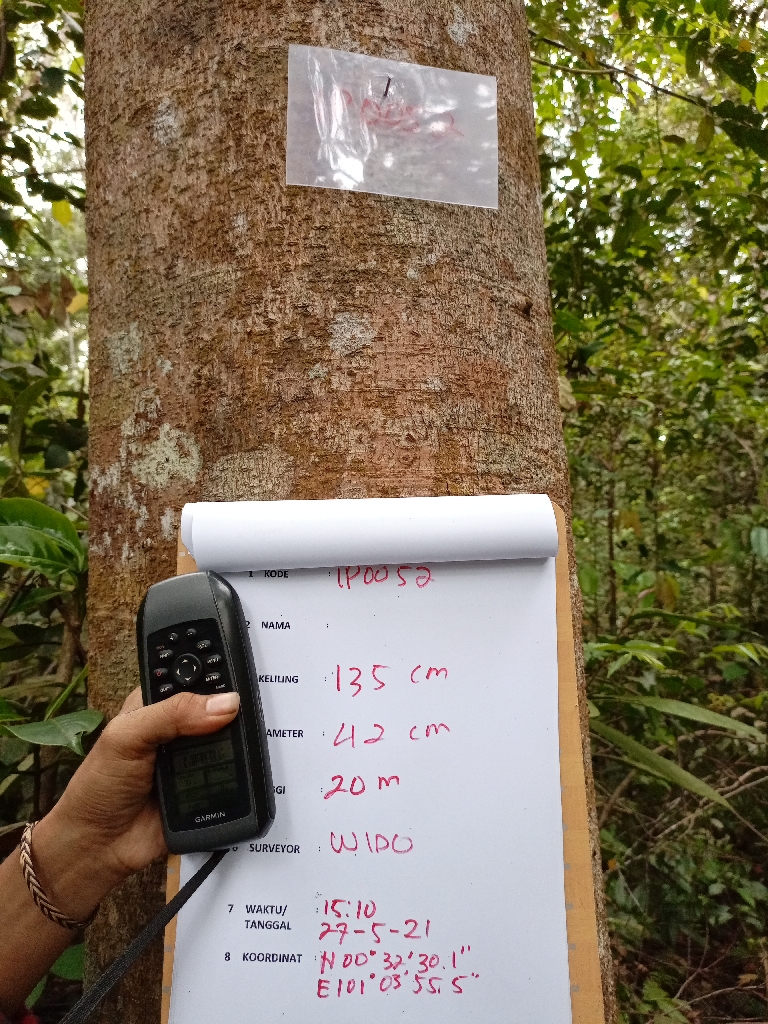 1 KODE : IP0052
2 NAMA :
KELILING : 135 cm
AMETER : 42 cm
GGI : 20 m
SURVEYOR : WIDO
7 WAKTU/ : 15:10
TANGGAL 27-5-21
8 KOORDINAT : N 00° 32' 30.1"
E101° 03' 55.5"
GARMIN